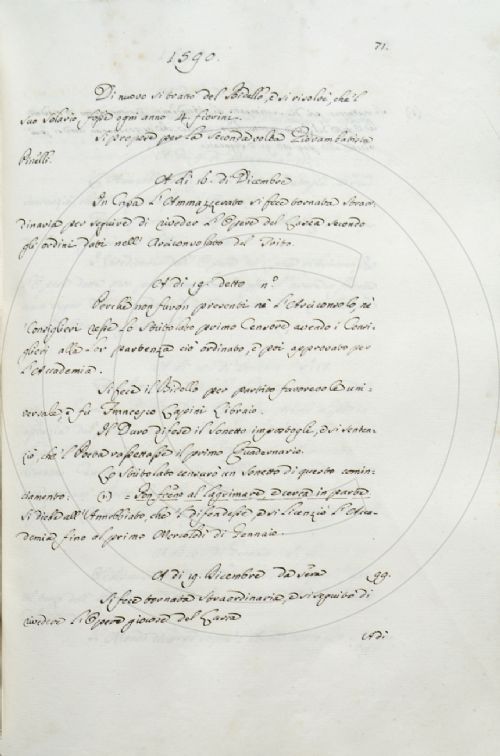 71.
1590.
Di nuovo si trattò del Bidello, e si risolvè, che 'l
suo Salario fosse ogni anno 4. fiorini.
Si propose per la seconda volta Giovambatista
Pinelli.
A dì 16. di Dicembre
In Casa l'Ammazzerato si fece tornata straor=
dinaria per seguire di rivedere l'Opere del Casa secondo
gli ordini dati nell'Arciconsolato del Trito.
A dì 19. detto nº.
Perchè non furon presenti nè l'Arciconsolo, nè
Consiglieri resse lo Stritolato primo Censore avendo i Consi=
glieri alla lor partenza ciò ordinato, e poi approvato per
l'Accademia.
Si fece il Bidello per partito favorevole uni=
versale, e fu Francesco Libraio.
Il Duro difese il Sonetto impostogli, e si senten=
ziò, che 'l Poeta rassettasse il primo Quadernario.
Lo Stritolato censurò un Sonetto di questo comin=
ciamento.
al lagrimare, e certa in parte
Si diede all'Annebbiato, che 'l difendesse, e si licenziò l'Acca=
demia fino al primo Mercoldì di Gennaio.
A dì 19. Dicembre da sera
99.
Si fece tornata straordinaria, e si seguitò di
rivedere l'Opere giocose del Casa
Adì